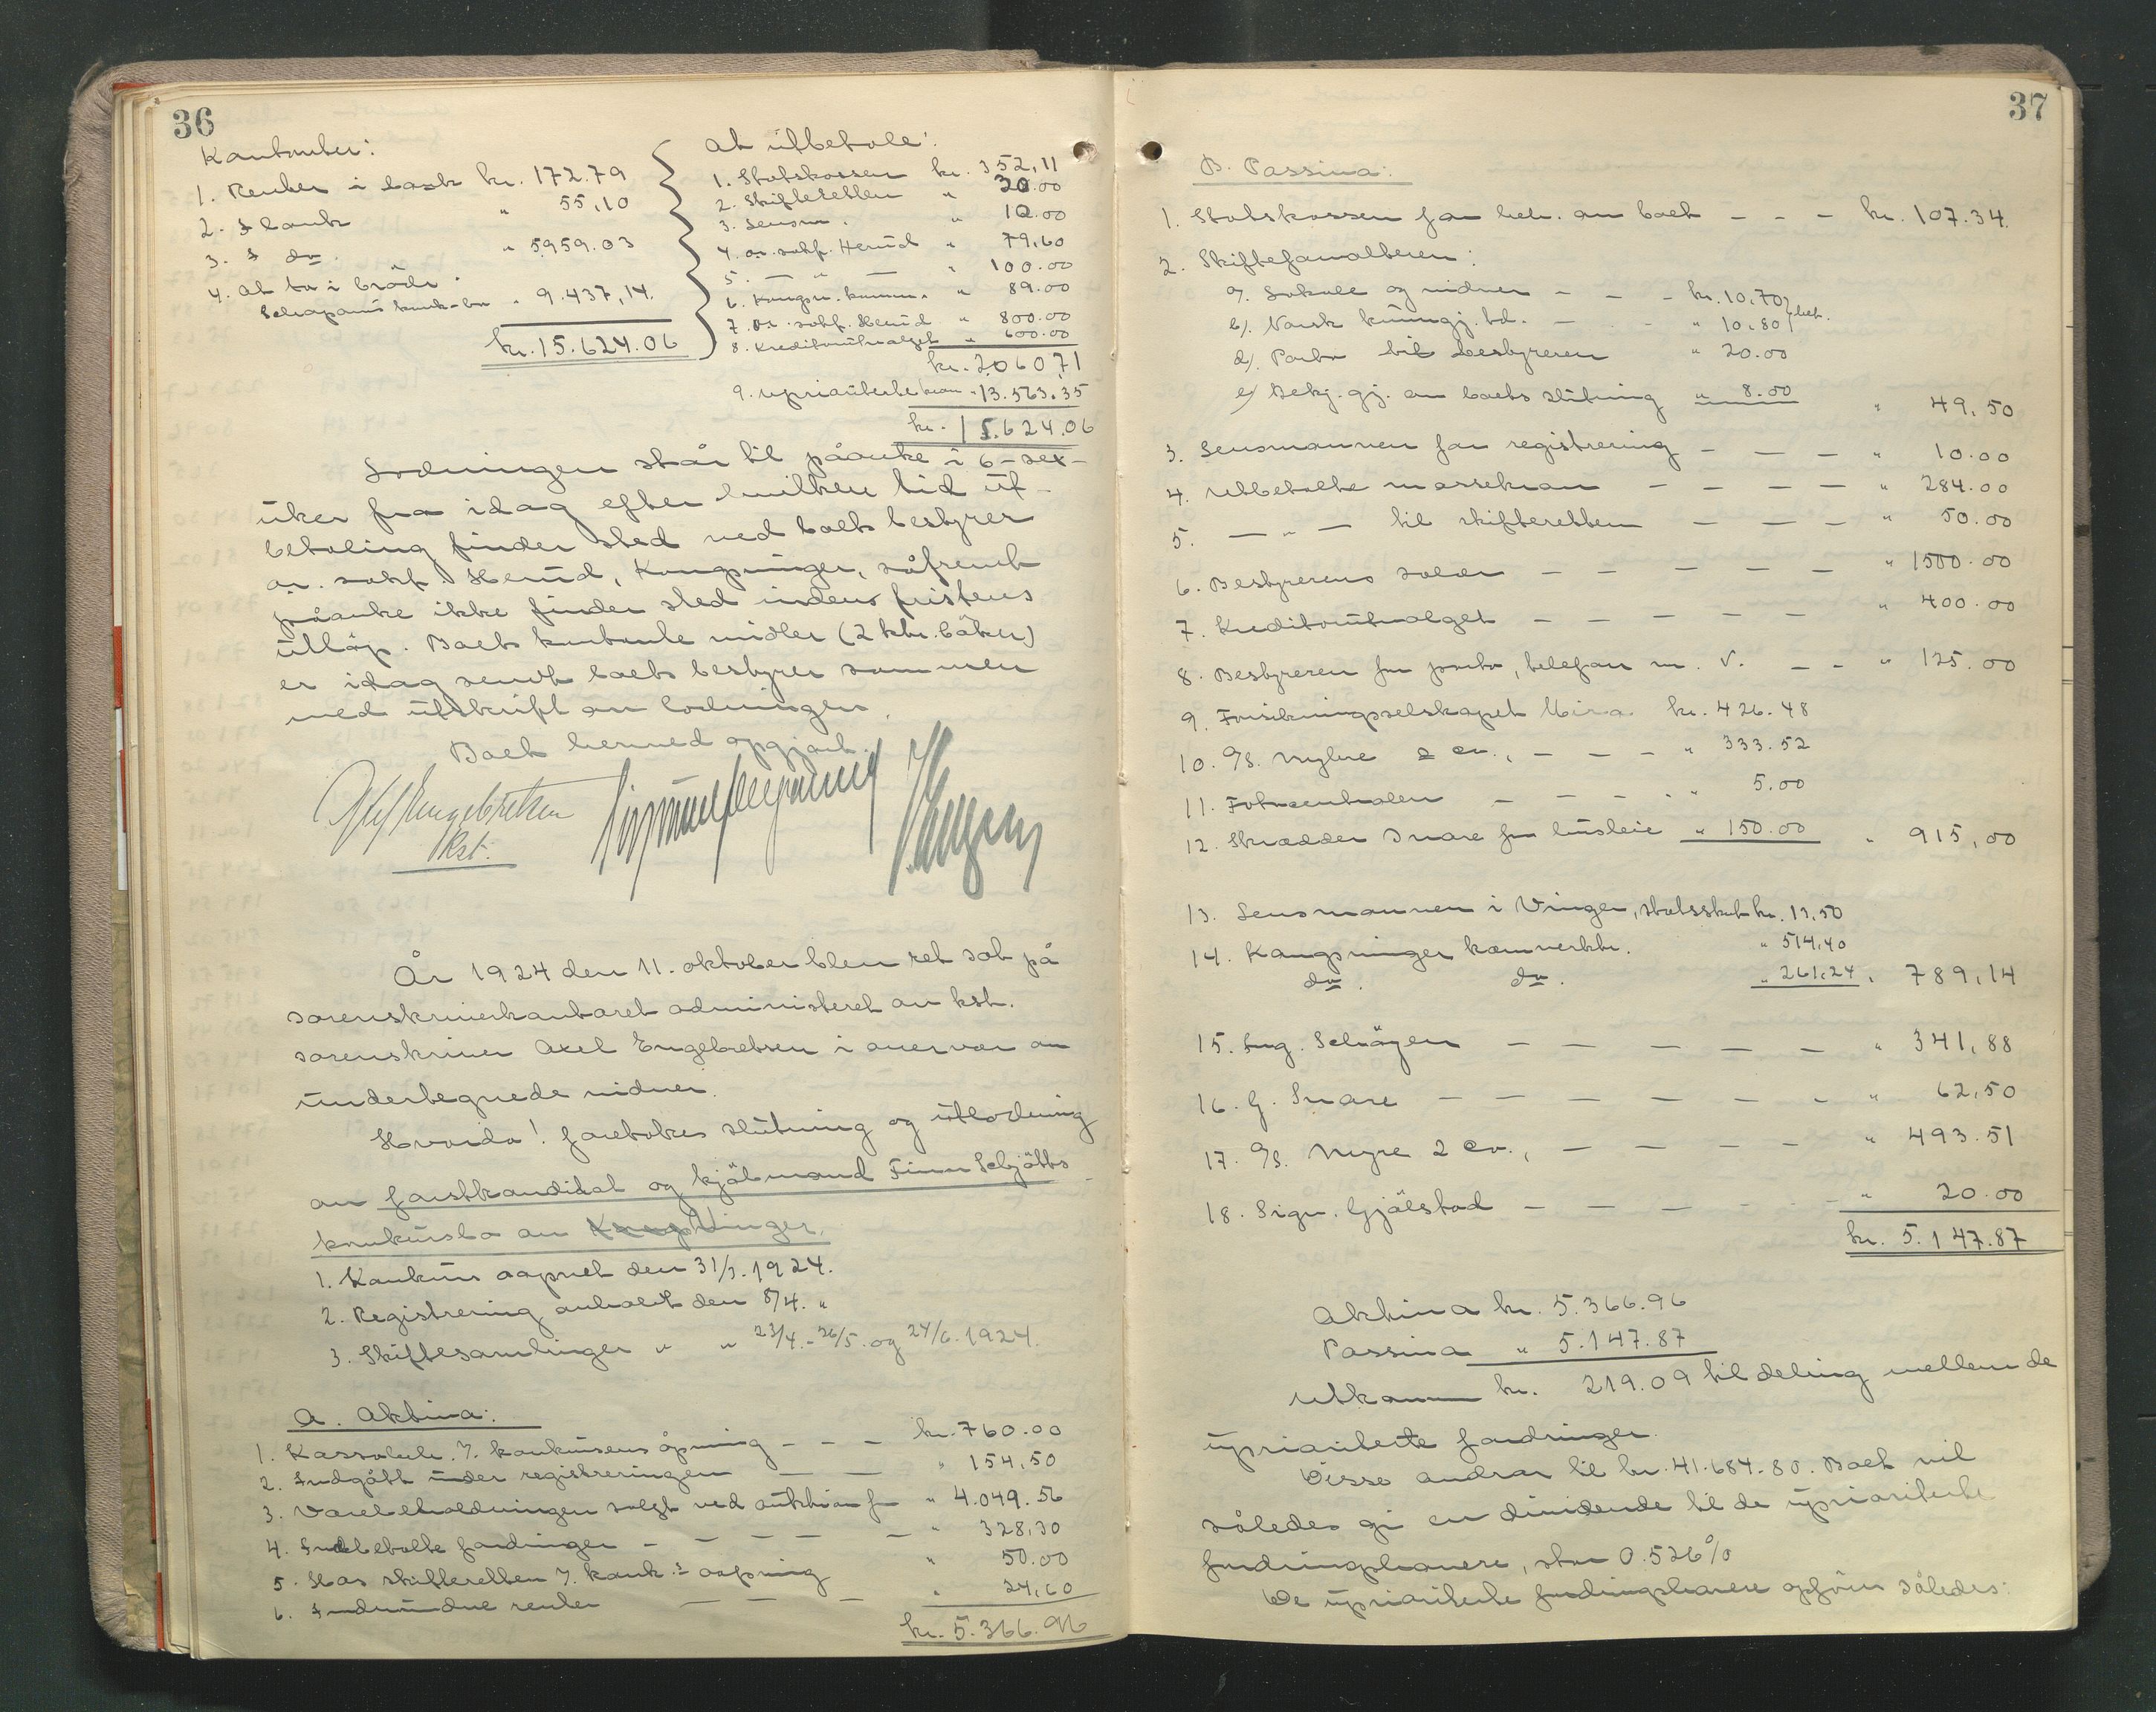 36
Kontanter:
1. Renter i bank kr. 172.79
2. I bank " 55,10
3. I do. " 5959.03
4. At ta i brödr.
Schrøpaus konk-bo " 9.437,14.
kr. 15.624.06
At utbetale:
1. Statskassen kr. 352,11
2. Skifteretten " 30.00
3. Lensm. " 10.00
4. o.r. sakf. Herud " 79,60
5. — " — " 100.00
6. Kongsv. komm. " 89.00
7. o.r. sakf. Herud " 800.00
8. Kreditorutvalget " 600.00
kr. 2060,71
9. upriorterte krav " 13.563.35
kr. 15.624.06
Lodningen står til påanke i 6-sex-
uker fra idag efter hvilken tid ut-
betaling finder sted ved boets bestyrer
o.r. sakf. Herud, Kongsvinger, såfremt
påanke ikke finder sted inden fristens
utløp. Boets kontante midler (2 ktr. bøker)
er idag sendt boets bestyrer sammen
med utskrift av lodningen.
Boet hermed opgjort.
Axel Engebretsen
kst.
År 1924 den 11. oktober blev ret sat på
sorenskriverkontoret administreret av kst.
sorenskriver Axel Engebretsen i overvær av
undertegnede vidner.
Hvorda! foretokes slutning og utlodning
av forstkandidat og kjøbmand Finn Schjøtts
konkursbo av Vinger.
1. Konkurs aapnet den 31/3. 1924.
2. Registrering avholdt den 8/4. "
3. Skiftesamlinger " " 23/4. - 26/5. og 24/6. 1924.
A. Aktiva:
1. Kassabeh. v. konkursens åpning - - - kr. 760.00
2. Indgått under registreringen — — " 154,50
3. Varebeholdningen solgt ved auktion for " 4.049.56
4. Indbetalte fordringer - - - - - " 328,30
5. Hos skifteretten v. konk.s aapning " 50.00
6. Indvundne renter — — — " 24,60
kr. 5.366.96
37
B. Passiva:
1. Statskassen for beh. av boet - - - kr. 107.34.
2. Skifteforvalteren:
a). Lokale og vidner - - - kr. 10,70
b). Norsk kunngj. td. — - - " 10.80 } bet.
d). Porto til bestyreren " 20.00
e) Bekj. gj. av boets slutning " 8.00 " 49,50
3. Lensmannen for registrering - — — " 10.00
4. Utbetalte massekrav — — — — " 284.00
5. — " — til skifteretten — — — " 50.00
6. Bestyrerens salær — — — — — " 1500.00
7. Kreditorutvalget — — — — — " 400.00
8. Bestyreren for porto, telefon m. v. — - " 125.00
9. Forsikringsselskapet Mira kr. 426.48
10. A/S. Myhre & Co., — - - " 333.52
11. Fotocentralen — - - - " 5.00
12. Skrædder Snare for husleie " 150.00 " 915,00
13. Lensmannen i Vinger, statsskat kr. 13,50
14. Kongsvinger kæmnerktr. " 514,40
do. do. " 261,24 " 789,14
15. Ing. Schøyen — — — — — " 341,88
16. G. Snare — — — — — - - " 62,50
17. A/S. Myre & Co., — — — — " 493.51
18. Sign. Gjølstad — — — - - - " 20.00
kr. 5.147.87
Aktiva kr. 5.366.96
Passiva " 5.147.87
Utkomm kr. 219.09 til deling mellem de
upriorterte fordringer.
Disse andrar til kr. 41.684.80. Boet vil
således gi en dividende til de upriorterte
fordringshavere, stor 0.526%
De upriorterte fordringshavere opføres således: